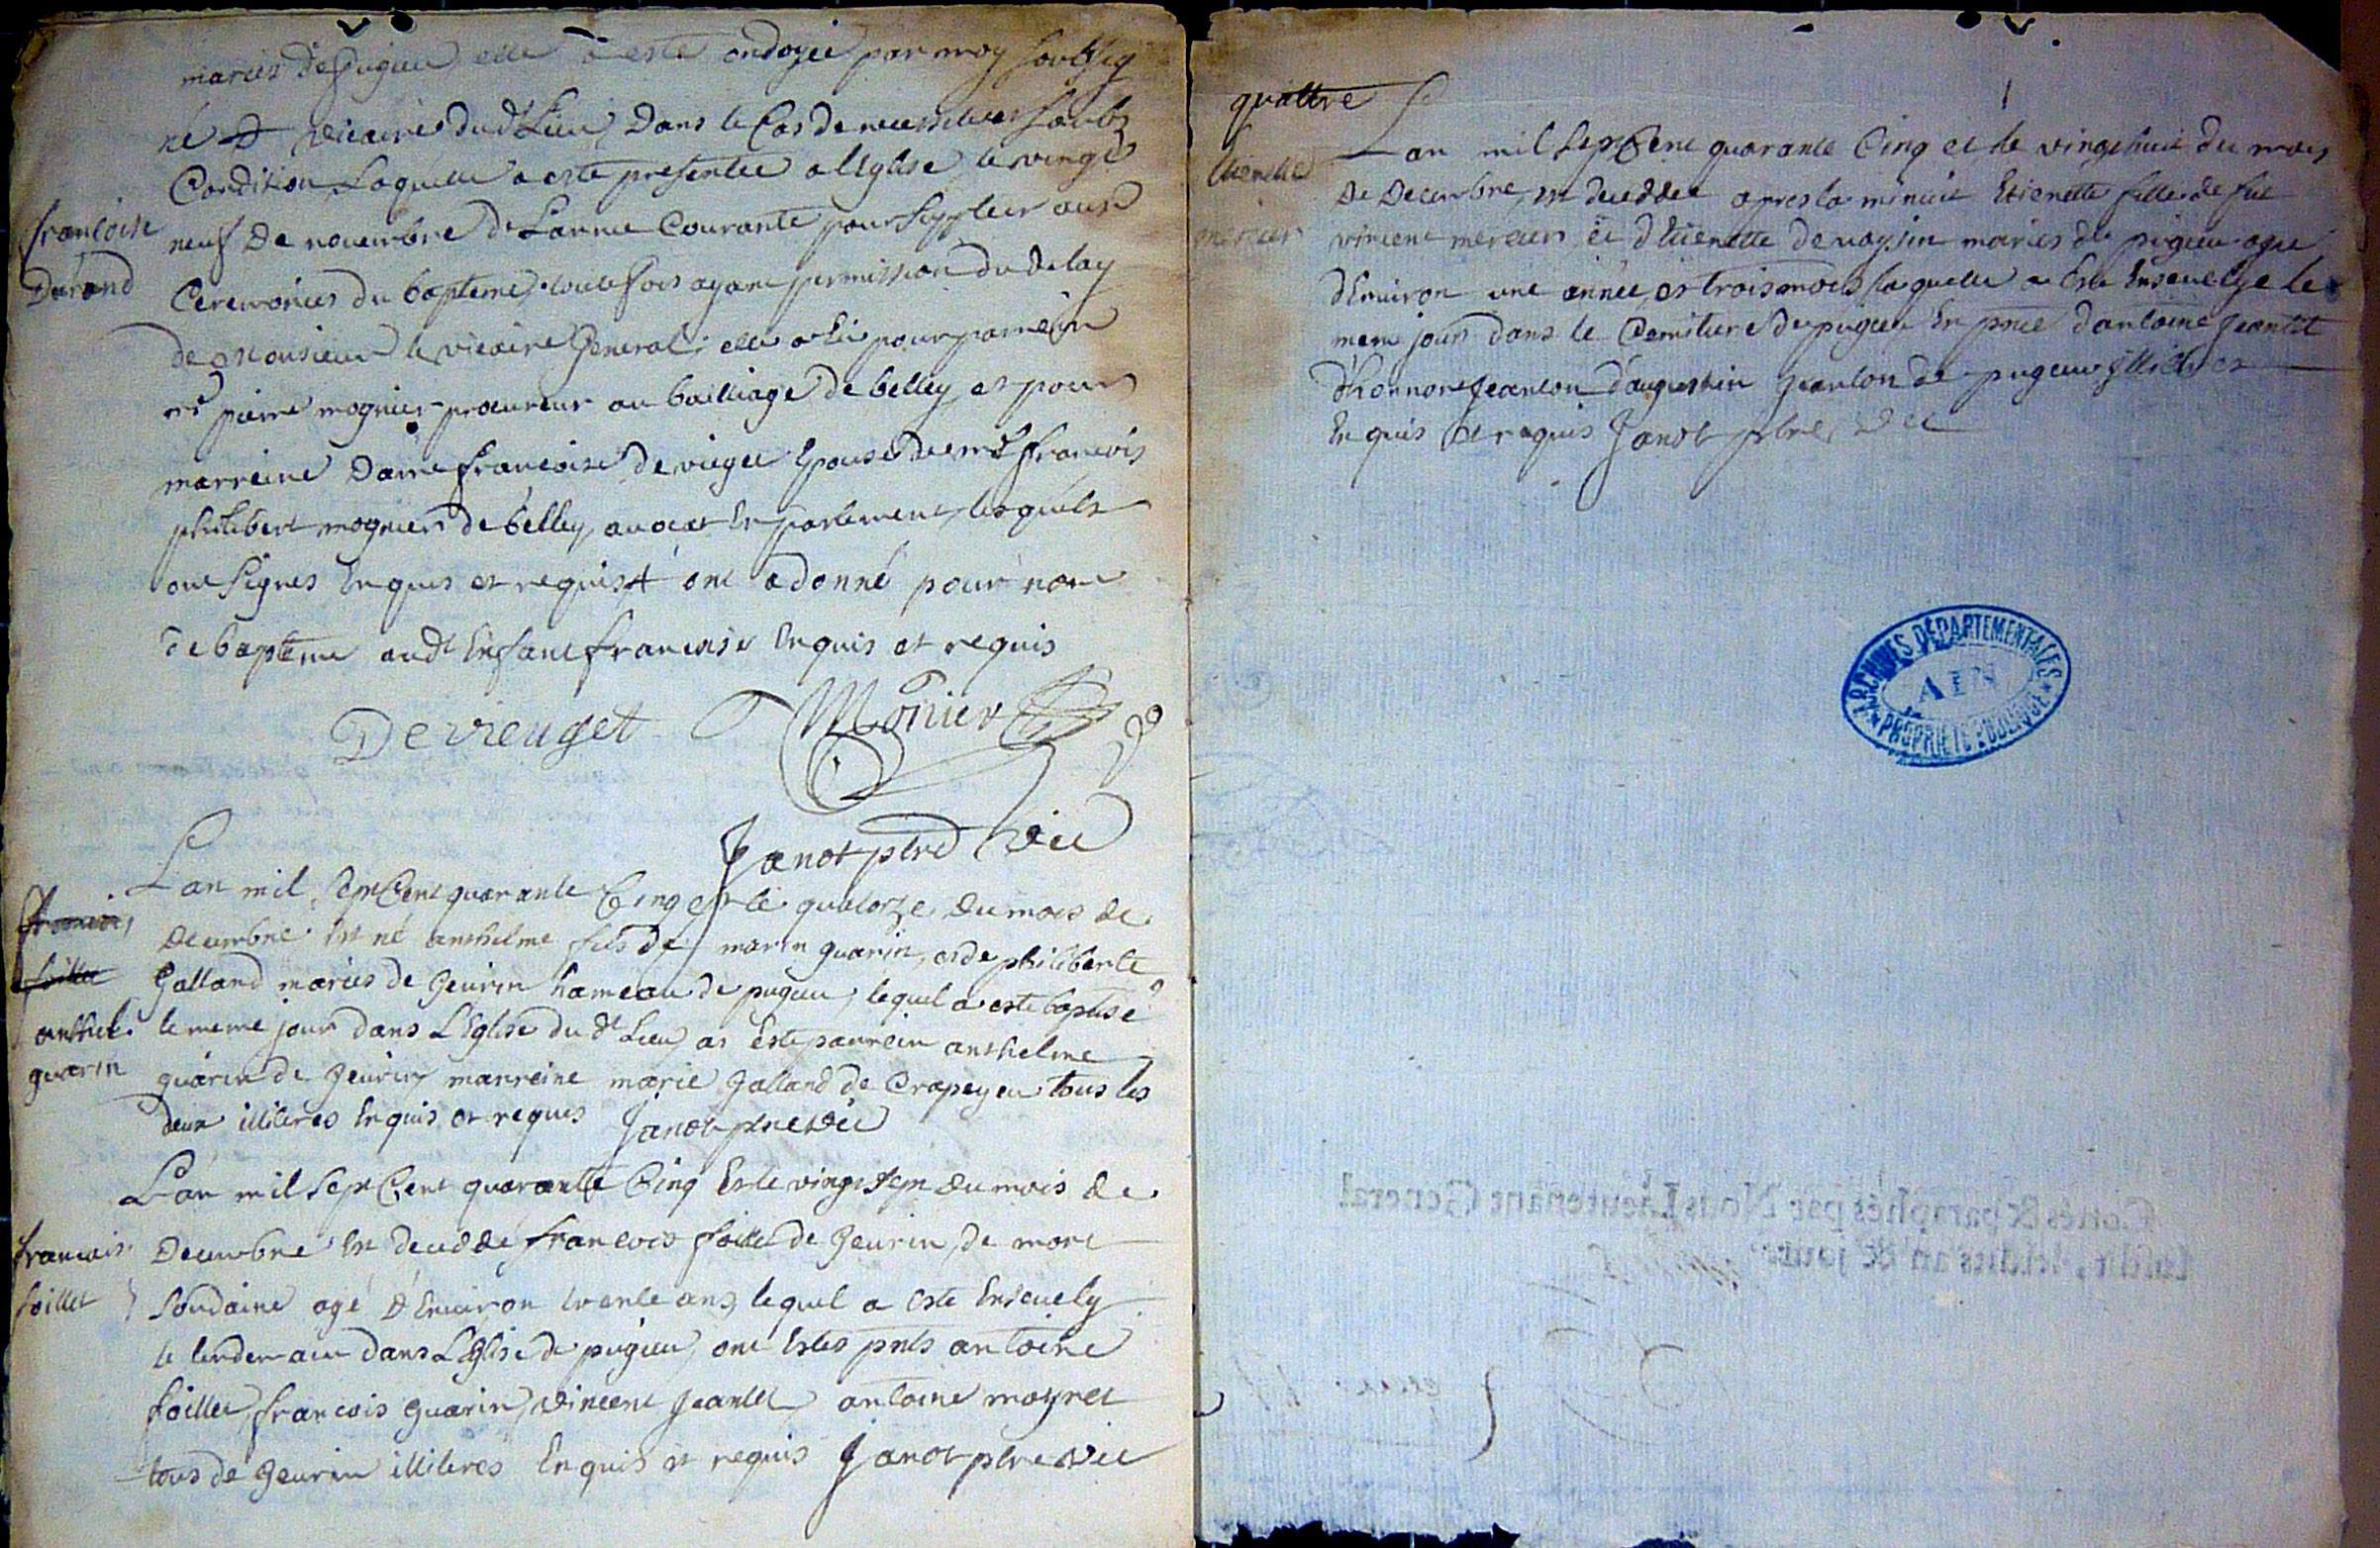 mariés de pugieu elle a esté ondoyée par moy soubsig
né vicaire dud Lieu, Dans le Cas de necessitées soubs
Condition, Laquelle a este presentée a l'Eglise le vingt
françoise
Durand
neuf De novembre de L'annee Courante pour suppleer aux
Ceremonies du bapteme, toutefois ayant permission du delay
de Monsieur le vicaire General; elle a eu pour parrein
mre pierre mognier procureur au bailliage de belley, et pour
marreine Dame francoise de vieget Epouse de mre francois
philibert mognier de belley, avocat En parlement, lesquels
ont signes Enquis et requis et ont a donné pour nom
de bapteme aud Enfant francoise Enquis et requis
Devieuget Mônier
Janot ptre vic
L'an mil sept Cent quarante Cinq et le quatorze du mois de
francois
foillet
anthel.
guarin
Decembre est né anthelme fils de marin guarin, et de philiberte
Galland mariés de Geurin hameau de pugieu, lequel a esté baptisé
le meme jour dans L'Eglise du dt Lieu, a Esté parrein anthelme
guarin de Geurin marreine marie Galland de Crapeyeu tous les
deux illiteres Enquis et requis Janot ptre vic
L'an mil sept Cent quarante Cinq Et le vingt sept du mois de
francois
foillet
Decembre Est deceddé francois foillet de Geurin, de mort
soudaine agé d'Environ trente ans, lequel a esté Ensevely
le lendemain dans L'Eglise de pugieu, ont Estes pnts antoine
foillet, francois Guarin, vincent Jeantet antoine moynet
tous de Geurin illiteres Enquis et requis Janot ptre vic
quattre
Etienette
mercier
L'an mil sept Cent quarante Cinq et le vingt huit du mois
De Decembre, est deceddée apres la minuit Etienette fille de fut
vincent mercier et d'Etienette de vaysin mariés de pugieu agée
d'Environ une année, et trois mois laquelle a Esté Ensevelye le
meme jour dans le Cemitiere de pugieu En pnce d'antoine Jeantet
d'honnore Jeanton d'augustin Jeanton de pugieu illiteres
Enquis et requis Janot ptre vic
ARCHIVES DÉPARTEMENTALES
AIN
PROPRIÉTÉ PUBLIQUE
Cottés & paraphés par Nous Lieutenant General
susdit, lesdits an & jour